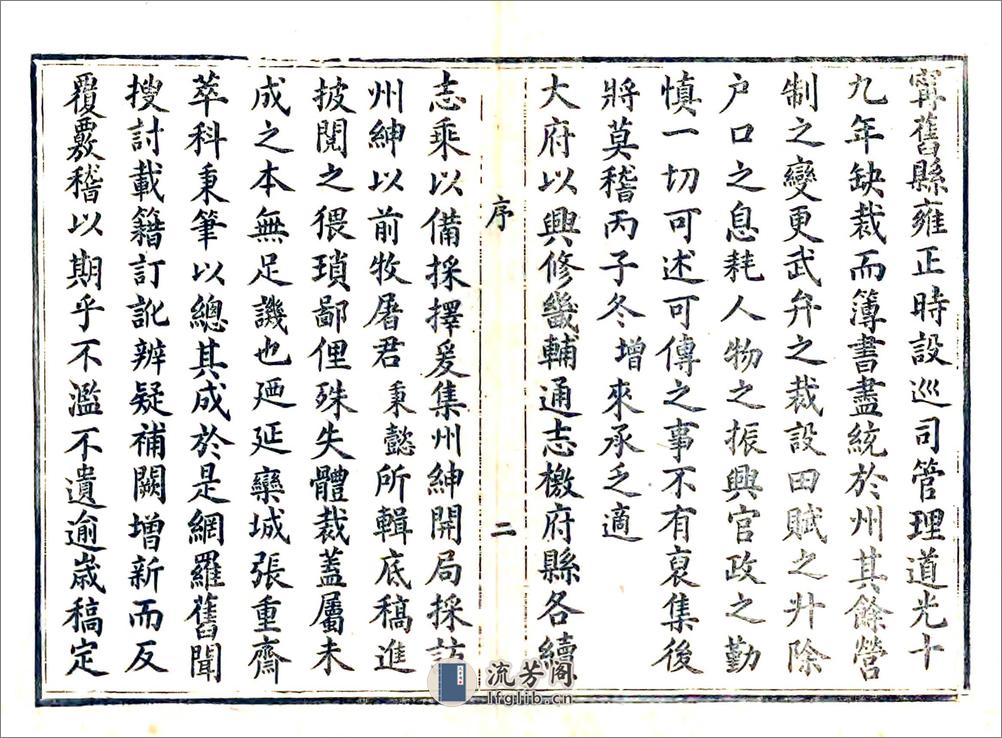 甯舊縣雍正時設巡司管理道光十
九年缺裁而簿書盡統於州其餘營
制之變更武弁之裁設田賦之升除
户口之息耗人物之振興官政之勤
慎一切可述可傳之事不有裒集後
將莫稽丙子冬增來承乏適
大府以興修畿輔通志檄府縣各續
序 二
志乘以備採擇爰集州紳開局採訪
州紳以前牧屠君秉懿所輯底稿進
披閱之猥瑣鄙俚殊失體裁蓋屬未
成之本無足譏也廼延欒城張重齋
萃科秉筆以總其成於是網羅舊聞
搜討載籍訂訛辨疑補闕增新而反
覆覈稽以期乎不濫不遺逾歲稿定
流芳阁
lfglib.cn